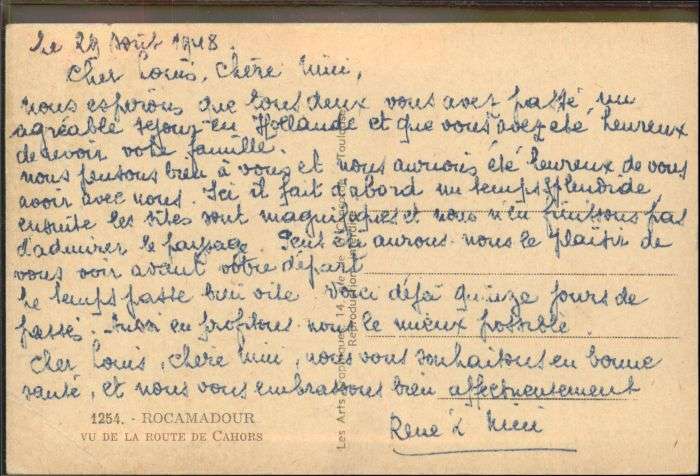 Le 29 Août 1948.
Cher Louis, chère Mimi,
nous espérons que tous deux vous avez passé un
agréable séjour en Hollande et que vous avez été heureux
de revoir votre famille.
nous pensons bien à vous et nous aurions été heureux de vous
avoir avec nous. Ici il fait d'abord un temps splendide,
ensuite les sites sont magnifiques et nous n'en finissons pas
d'admirer le paysage. Peut être aurons nous le plaisir de
vous voir avant votre départ
Le temps passe bien vite voici déjà quinze jours de
passés aussi en profitons nous le mieux possible
Cher Louis, chère Mimi, nous vous souhaitons en bonne
santé, et nous vous embrassons bien affectueusement
René & Mimi
1254. - ROCAMADOUR
VU DE LA ROUTE DE CAHORS
Les Arts 14 Toulouse
Reproduction